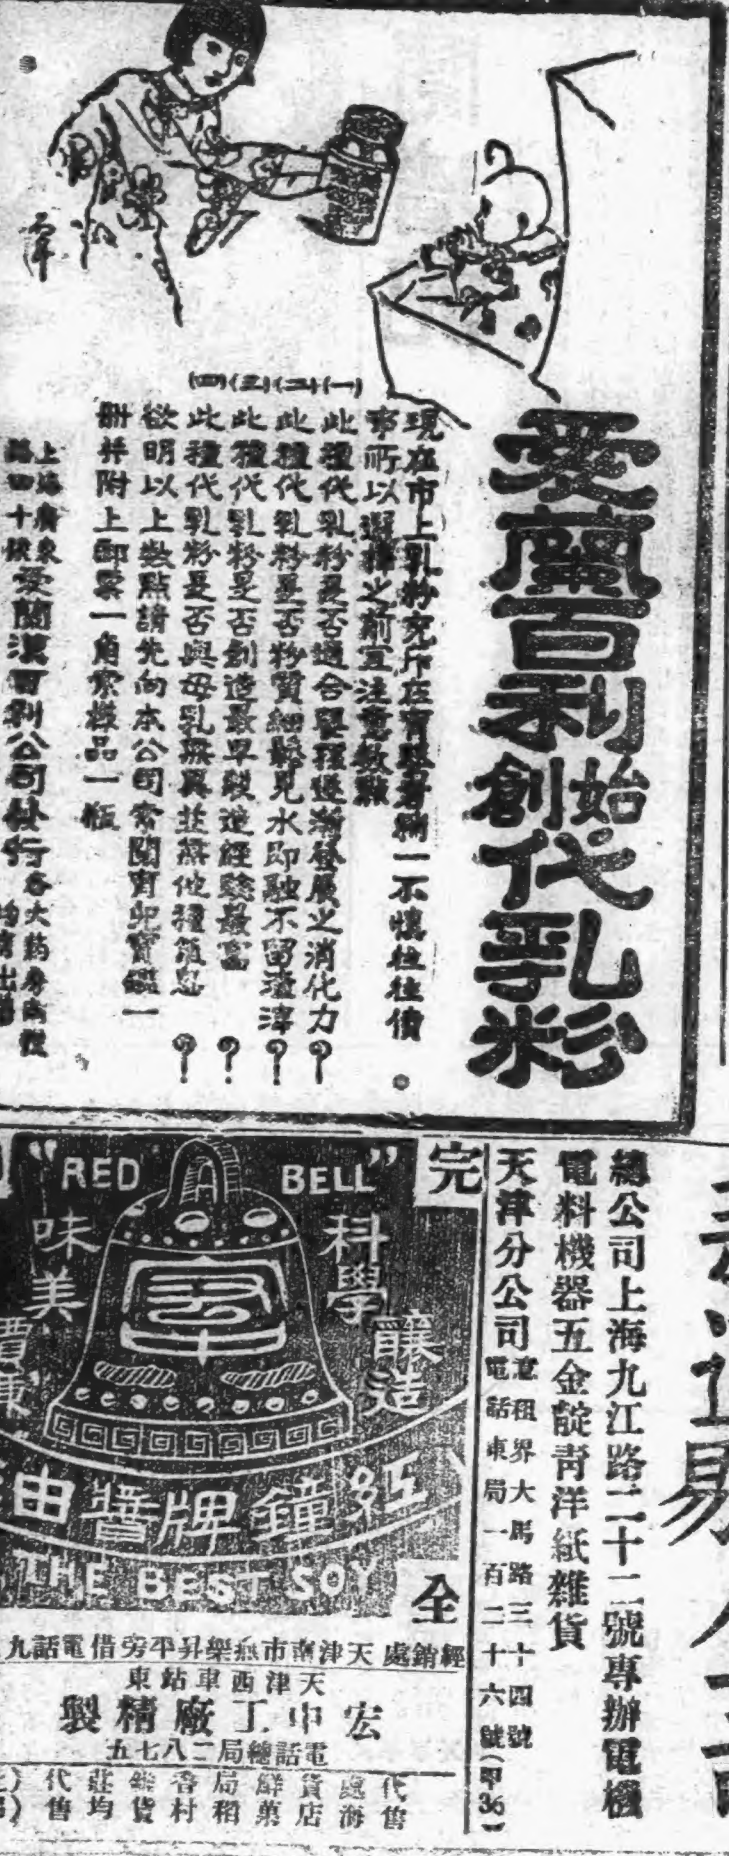 愛蘭百利
創始
代乳粉
現在市上乳粉充斥
事前所以選擇之前宜注意數點
(一)此種代乳粉是否適合嬰孩逐漸發展之消化力?
(二)此種代乳粉是否粉質細鬆見水即融不留渣滓?
(三)此種代乳粉是否創造最早製造經驗最富?
(四)此種代乳粉是否與母乳無異並無他種流弊?
欲明以上數點請先向本公司索閱育兒寶鑑一
冊并附上郵票一角索樣品一瓶
上海廣東路四十號
愛蘭漢百利公司發行
各大藥房
均有出售
總公司上海九江路二十二號專辦電機
電料機器五金靛青洋紙雜貨
天津分公司
意租界大馬路三十四號
電話東局一百二十六號(甲36)
完
全
"RED BELL"
科學
釀造
味美
價廉
紅鐘牌醬油
THE BEST SOY
經銷處 天津南市燕樂昇平旁借電話九
天津西車站東
宏中工廠精製
電話總局二八七五
代售處
海貨店
鮮菓局
稻香村
莊均
代售